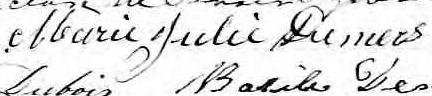 Marie Julie Demers
Dubois Basile Des